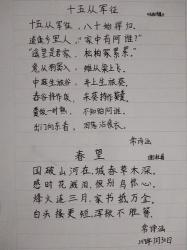 十五从军征
十五从军征，八十始得归。
道逢乡里人，“家中有阿谁？”
“遥看是君家，松柏冢累累。”
兔从狗窦入，雉从梁上飞。
中庭生旅谷，井上生旅葵。
舂谷持作饭，采葵持作羹。
羹饭一时熟，不知贻阿谁。
出门向东看，泪落沾我衣。
常诗涵
春望
国破山河在，城春草木深。
感时花溅泪，恨别鸟惊心。
烽火连三月，家书抵万金。
白头搔更短，浑欲不胜簪。
常诗涵